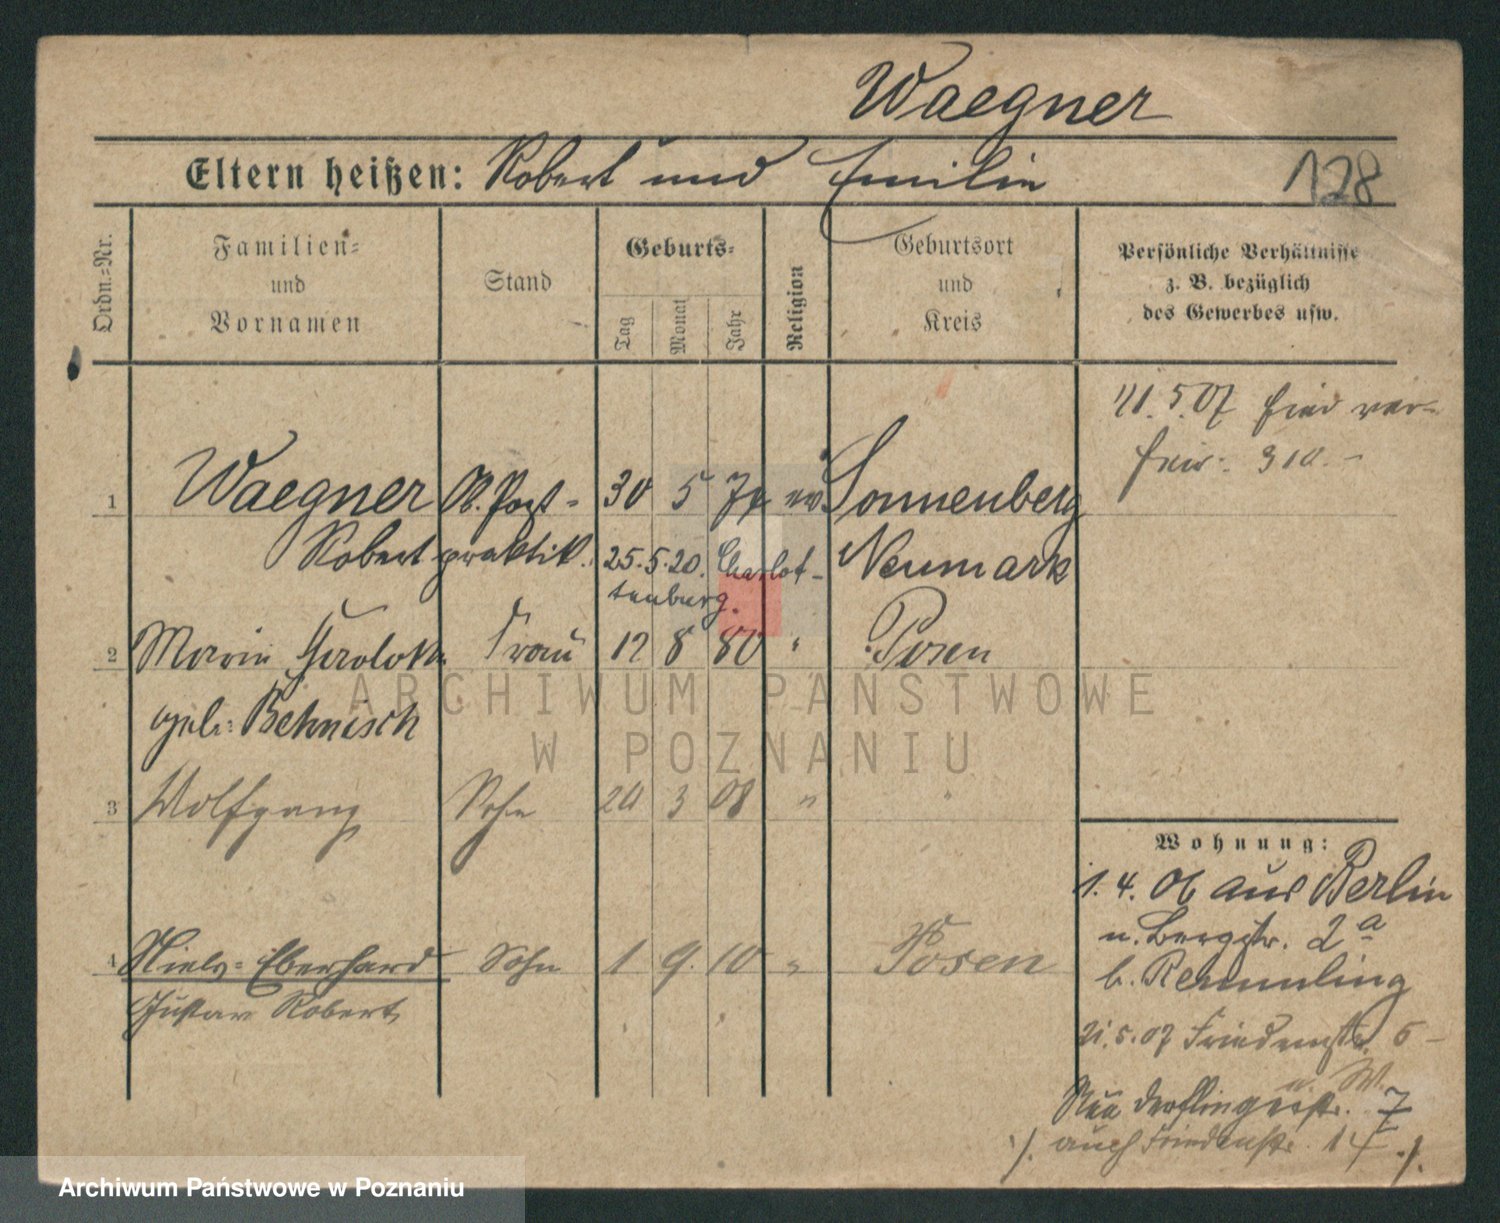 Waegner
Eltern heißen: Robert und Emilie
128
Ordn.=Nr.
Familien=
und
Vornamen
Stand
Geburts=
Tag
Monat
Jahr
Religion
Geburtsort
und
Kreis
Persönliche Verhältnisse
z. B. bezüglich
des Gewerbes usw.
5. 07 hier ver-
1 Waegner Ob. Post- 30 5 ev Sonnenberg
Robert praktik. 25.5.20. Charlot- Neumark
tenburg.
2 Marie Frau 12 8 80 " Posen
geb: Behnisch
3 Wolfgang Sohn 20 3 08 "
4 Niels-Eberhard Sohn 1 9. 10 " Posen
Gustav Robert
Wohnung:
1. 4. 06 aus Berlin
n. Bergstr. 2a
b. Remmling
21.5.07 Friedenstr. 5
Neue Derfflingerstr. 7
./. auch Friedenstr. 14 ./.
ARCHIWUM PAŃSTWOWE
W POZNANIU
Archiwum Państwowe w Poznaniu